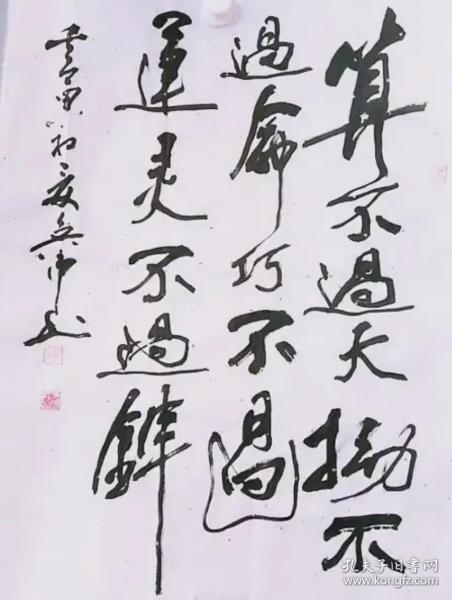 算不過天拗不
過命巧不過
運灵不過
初夏
孔夫子旧书网
www.kongfz.com